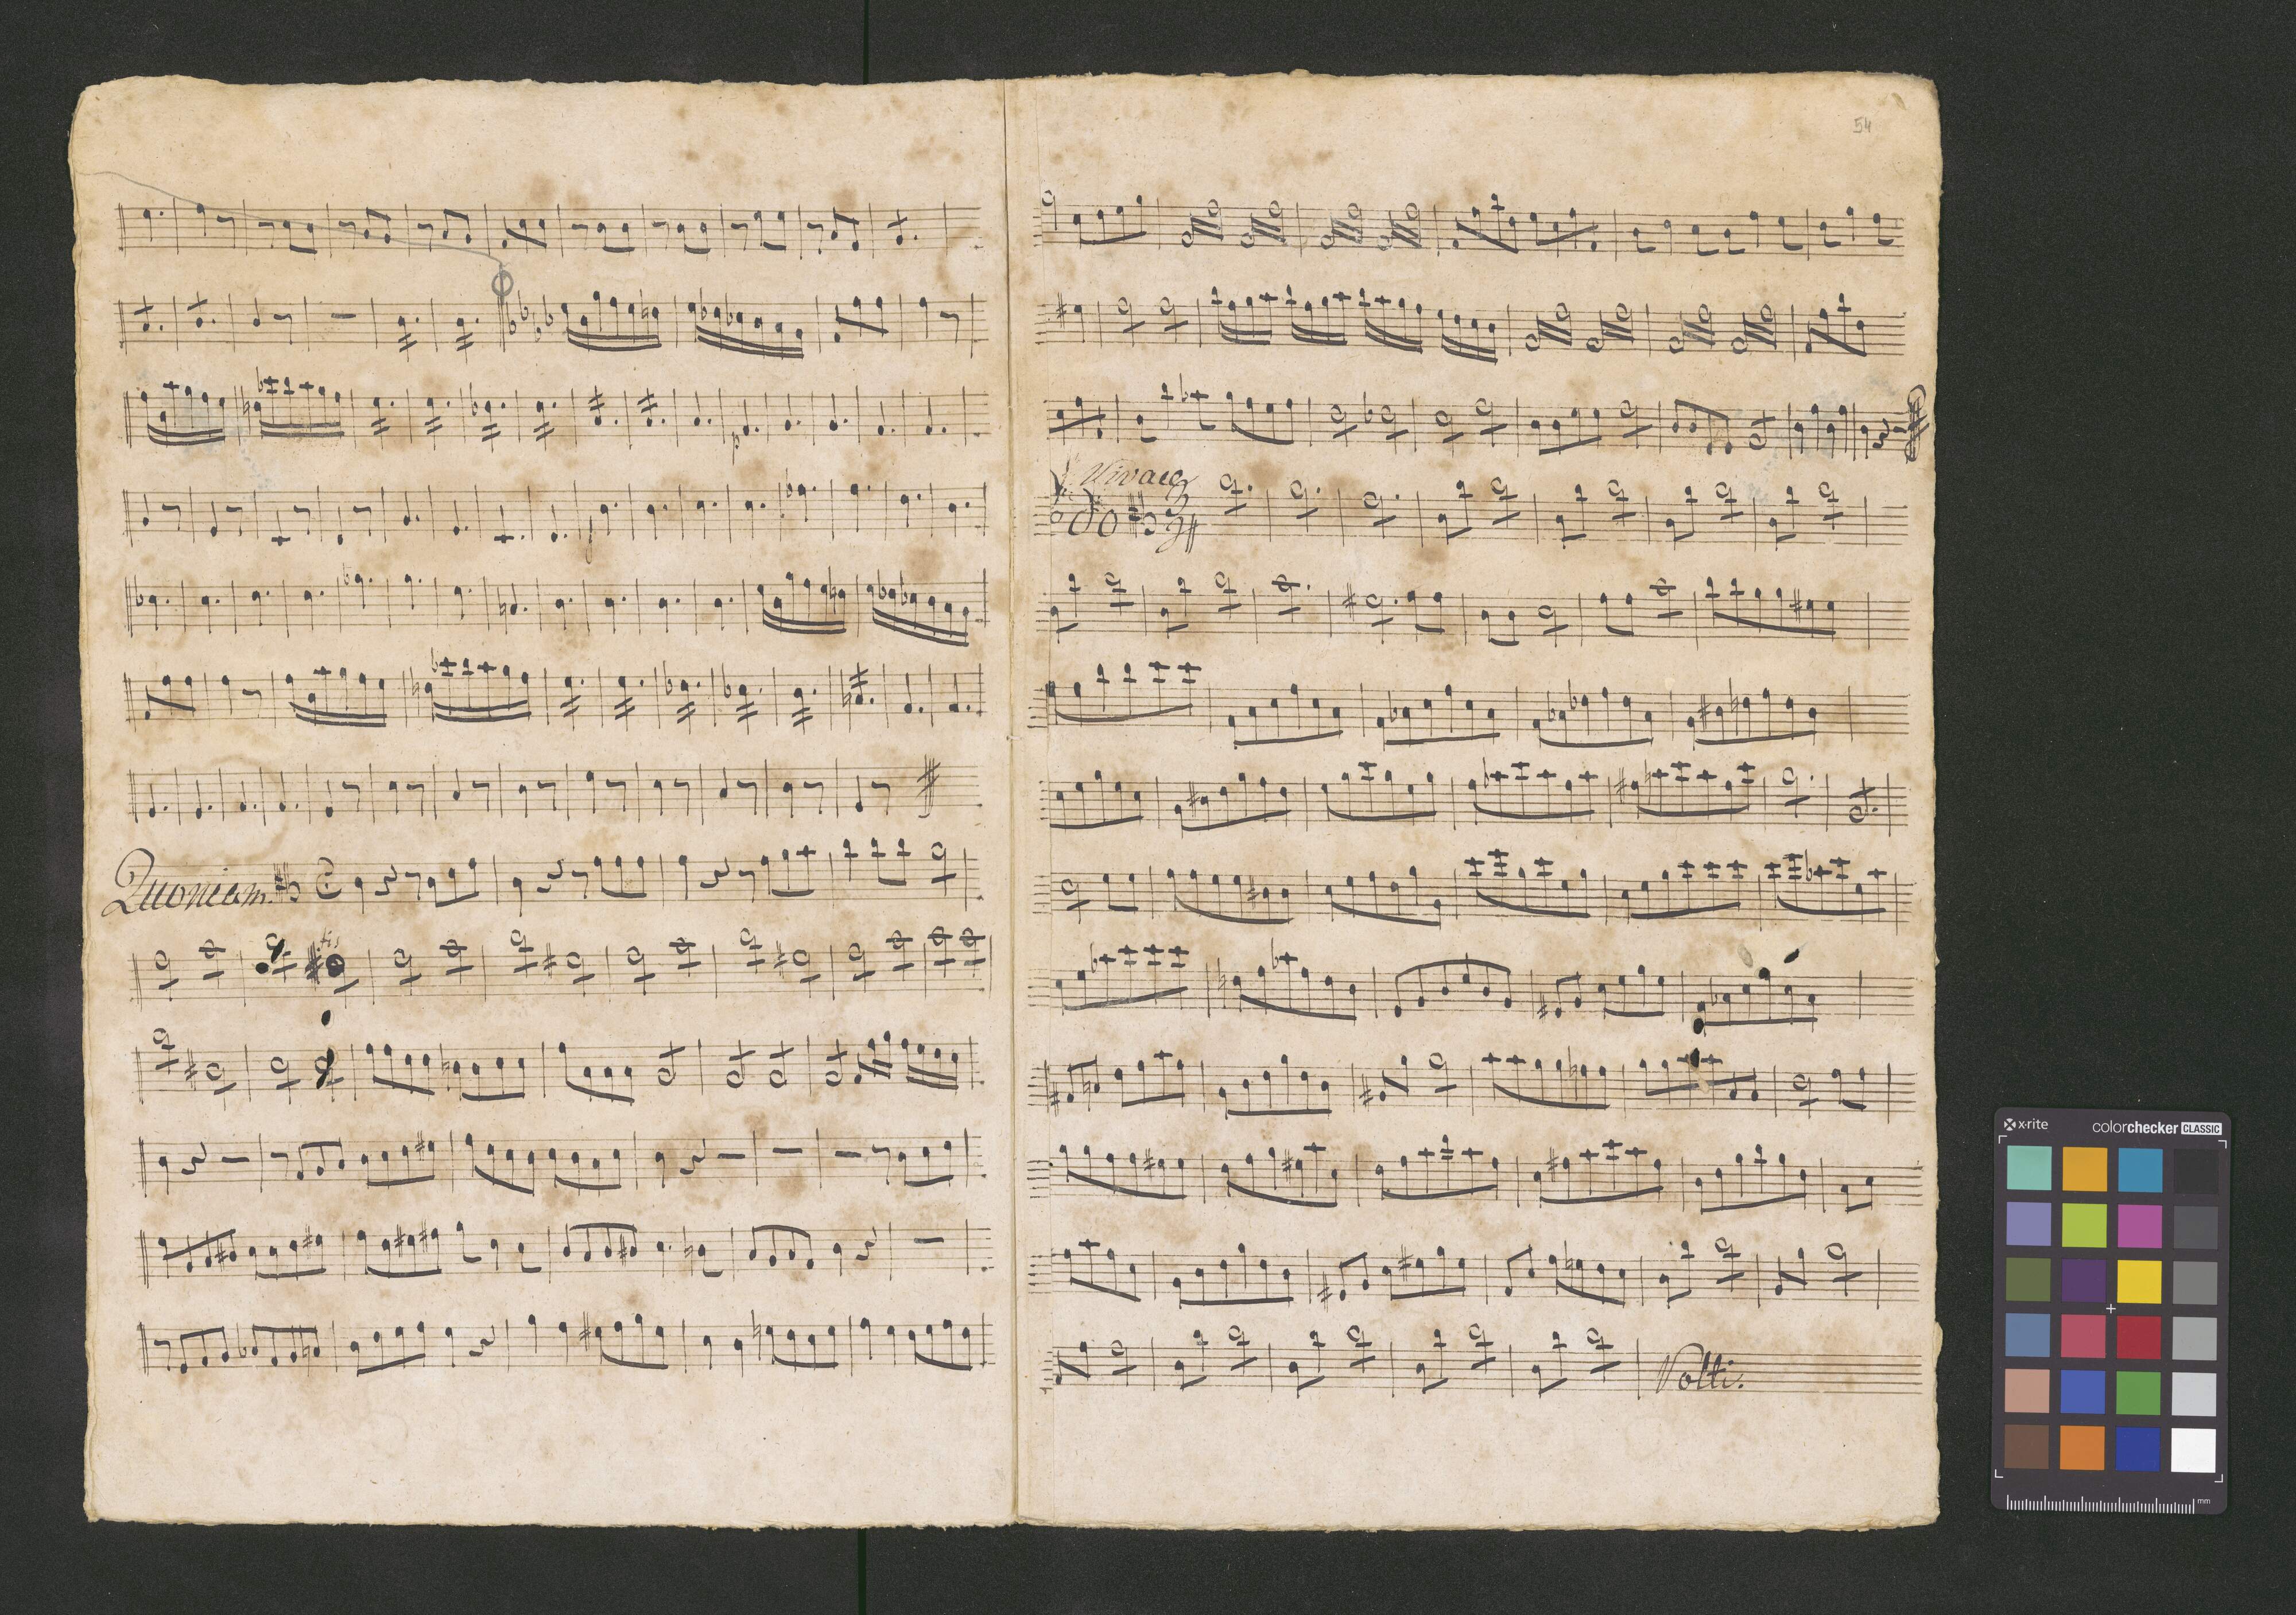 p
f
Quoniam.
fis
54
Vivace
Volti.
x-rite
colorchecker CLASSIC
mm